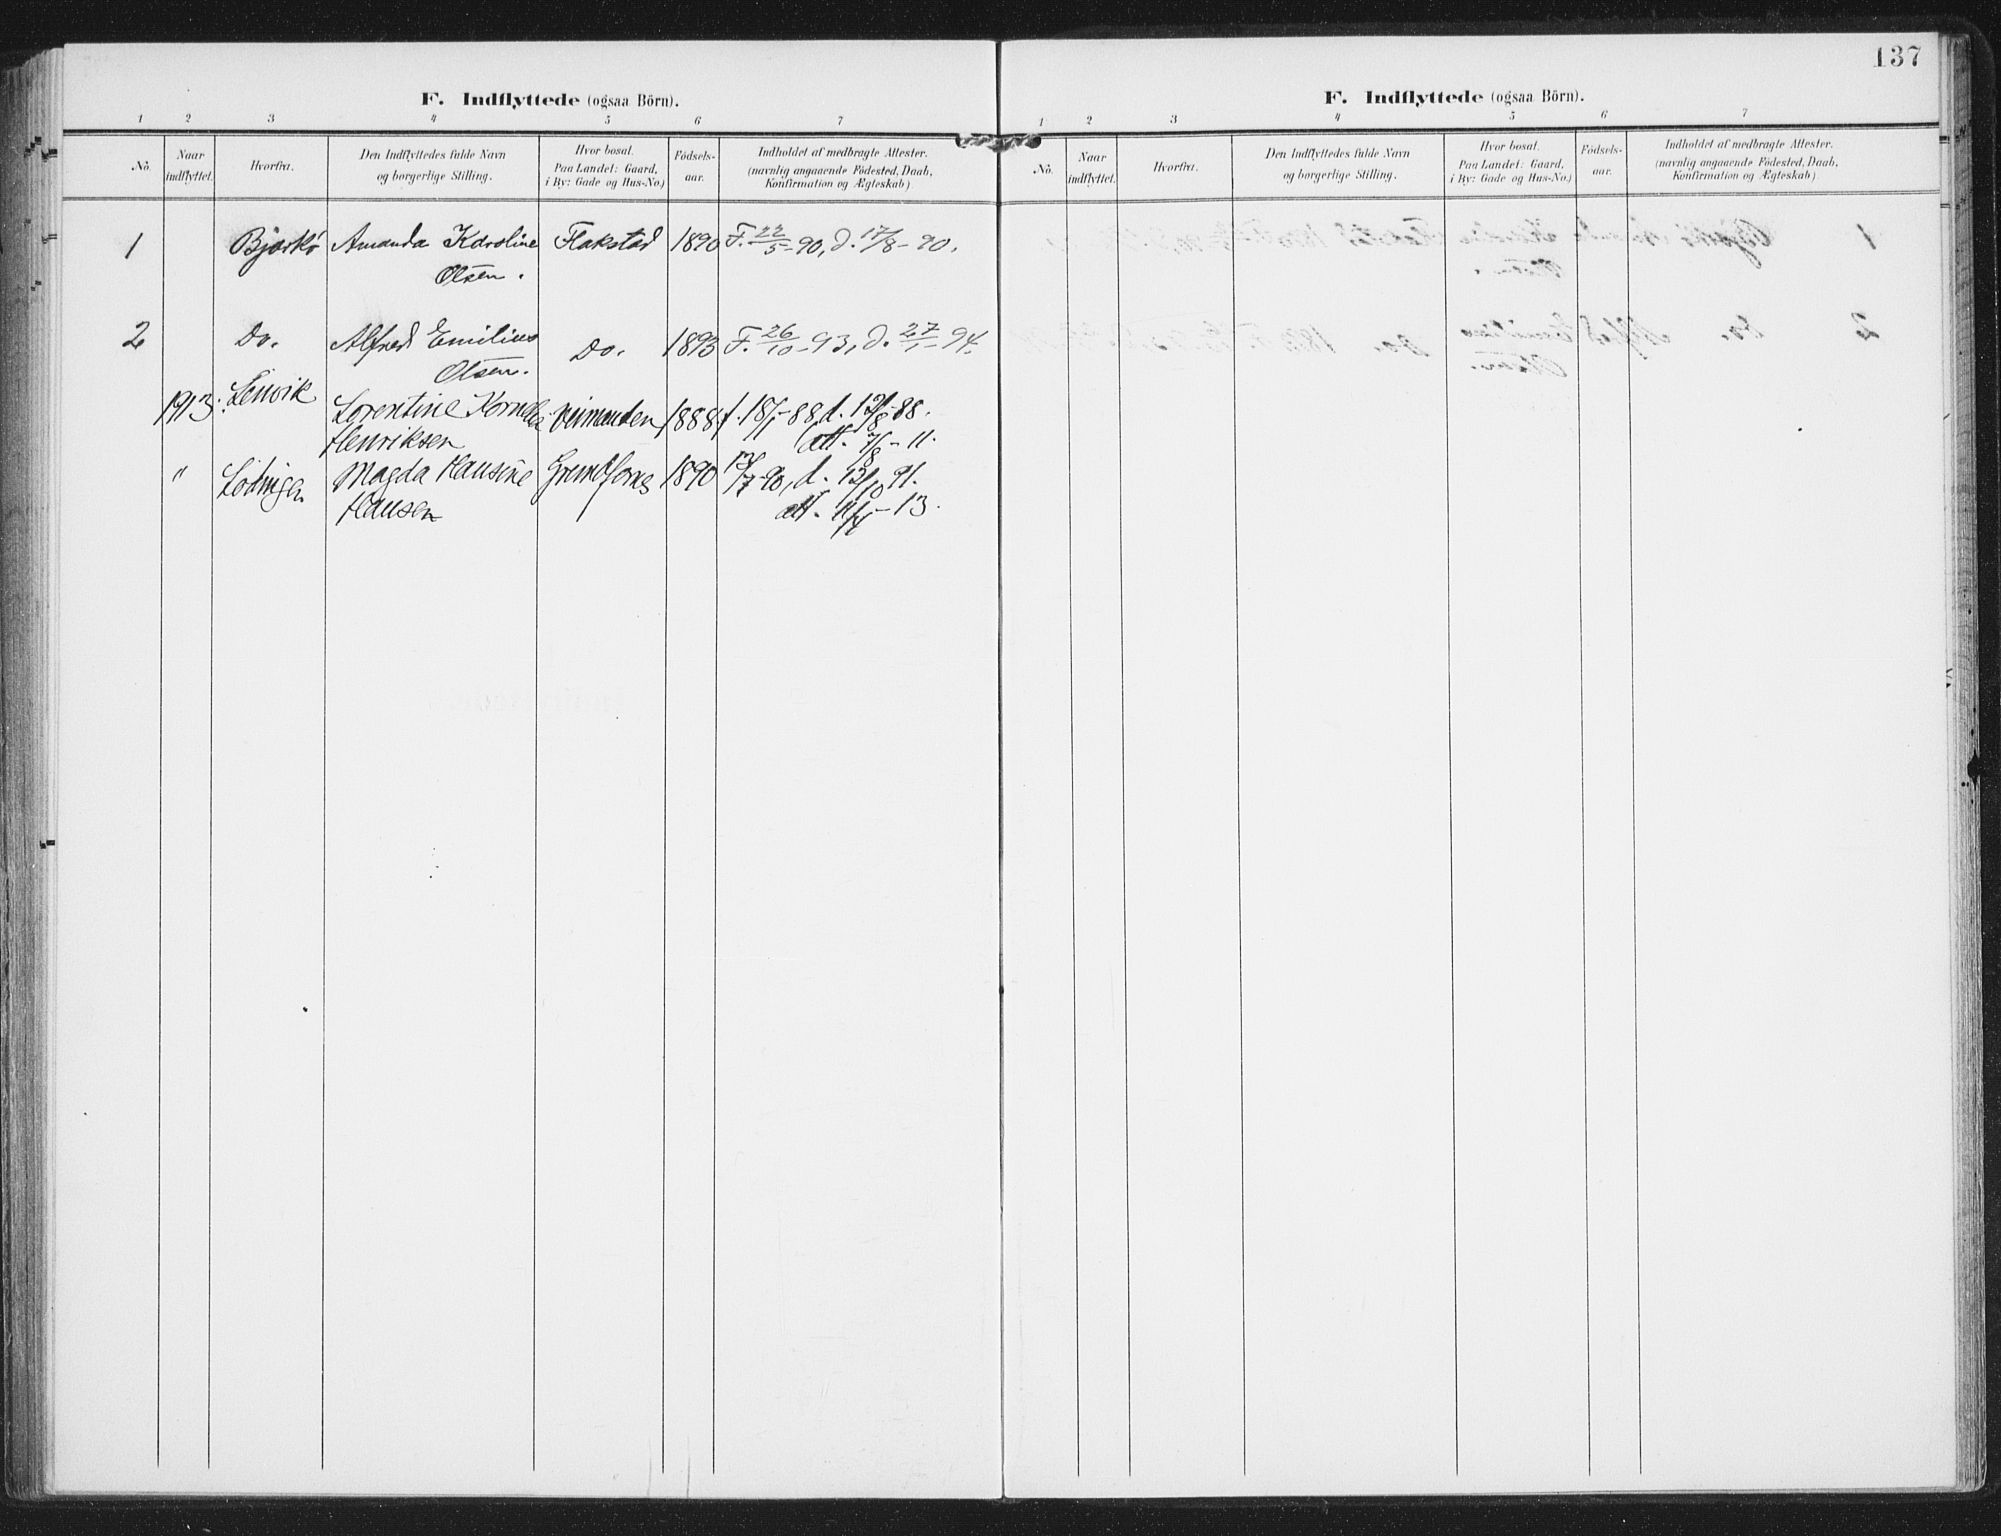 137
F. Indflyttede (ogsaa Börn).
1 2 3 4 5 6 7
No. Naar indflyttet. Hvorfra. Den Indflyttedes fulde Navn og borgerlige Stilling. Hvor bosat. Paa Landet: Gaard, i By: Gade og Hus-No.) Födsels-aar. Indholdet af medbragte Attester. (navnlig angaaende Födested, Daab, Konfirmation og Ægteskab)
1 Bjarkö Amanda Karoline Flakstad 1890 F. 22/5-90, d. 17/8-90.
Olsen.
2 Do. Alfred Emilius Do. 1893 F. 26/10-93, d. 27/1-94.
Olsen.
1913. Lenvik Lorentine Kornelia 1888 f. 18/1-88 d. 12/8-88.
Henriksen att. 7/8-11.
" Lödingen Magda Hansine 1890 12/7-90, d. 12/10 91.
Hansen att. 11/4-13.
F. Indflyttede (ogsaa Börn).
1 2 3 4 5 6 7
No. Naar indflyttet. Hvorfra. Den Indflyttedes fulde Navn og borgerlige Stilling. Hvor bosat. Paa Landet: Gaard, i By: Gade og Hus-No.) Födsels-aar. Indholdet af medbragte Attester. (navnlig angaaende Födested, Daab, Konfirmation og Ægteskab)